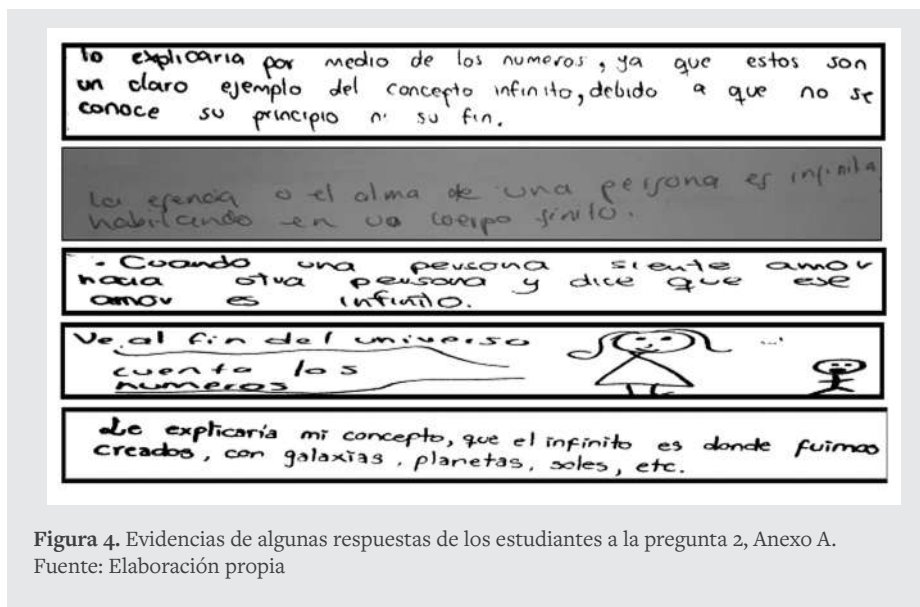 lo explicaria por medio de los numeros, ya que estos son
un claro ejemplo del concepto infinito, debido a que no se
conoce su principio ni su fin.
La esencia o el alma de una persona es infinita
habitando en un cuerpo finito.
. Cuando una persona siente amor
hacia otra persona y dice que ese
amor es infinito.
Ve al fin del universo
cuenta los
numeros
...
Le explicaría mi concepto, que el infinito es donde fuimos
creados, con galaxias, planetas, soles, etc.
Figura 4. Evidencias de algunas respuestas de los estudiantes a la pregunta 2, Anexo A.
Fuente: Elaboración propia